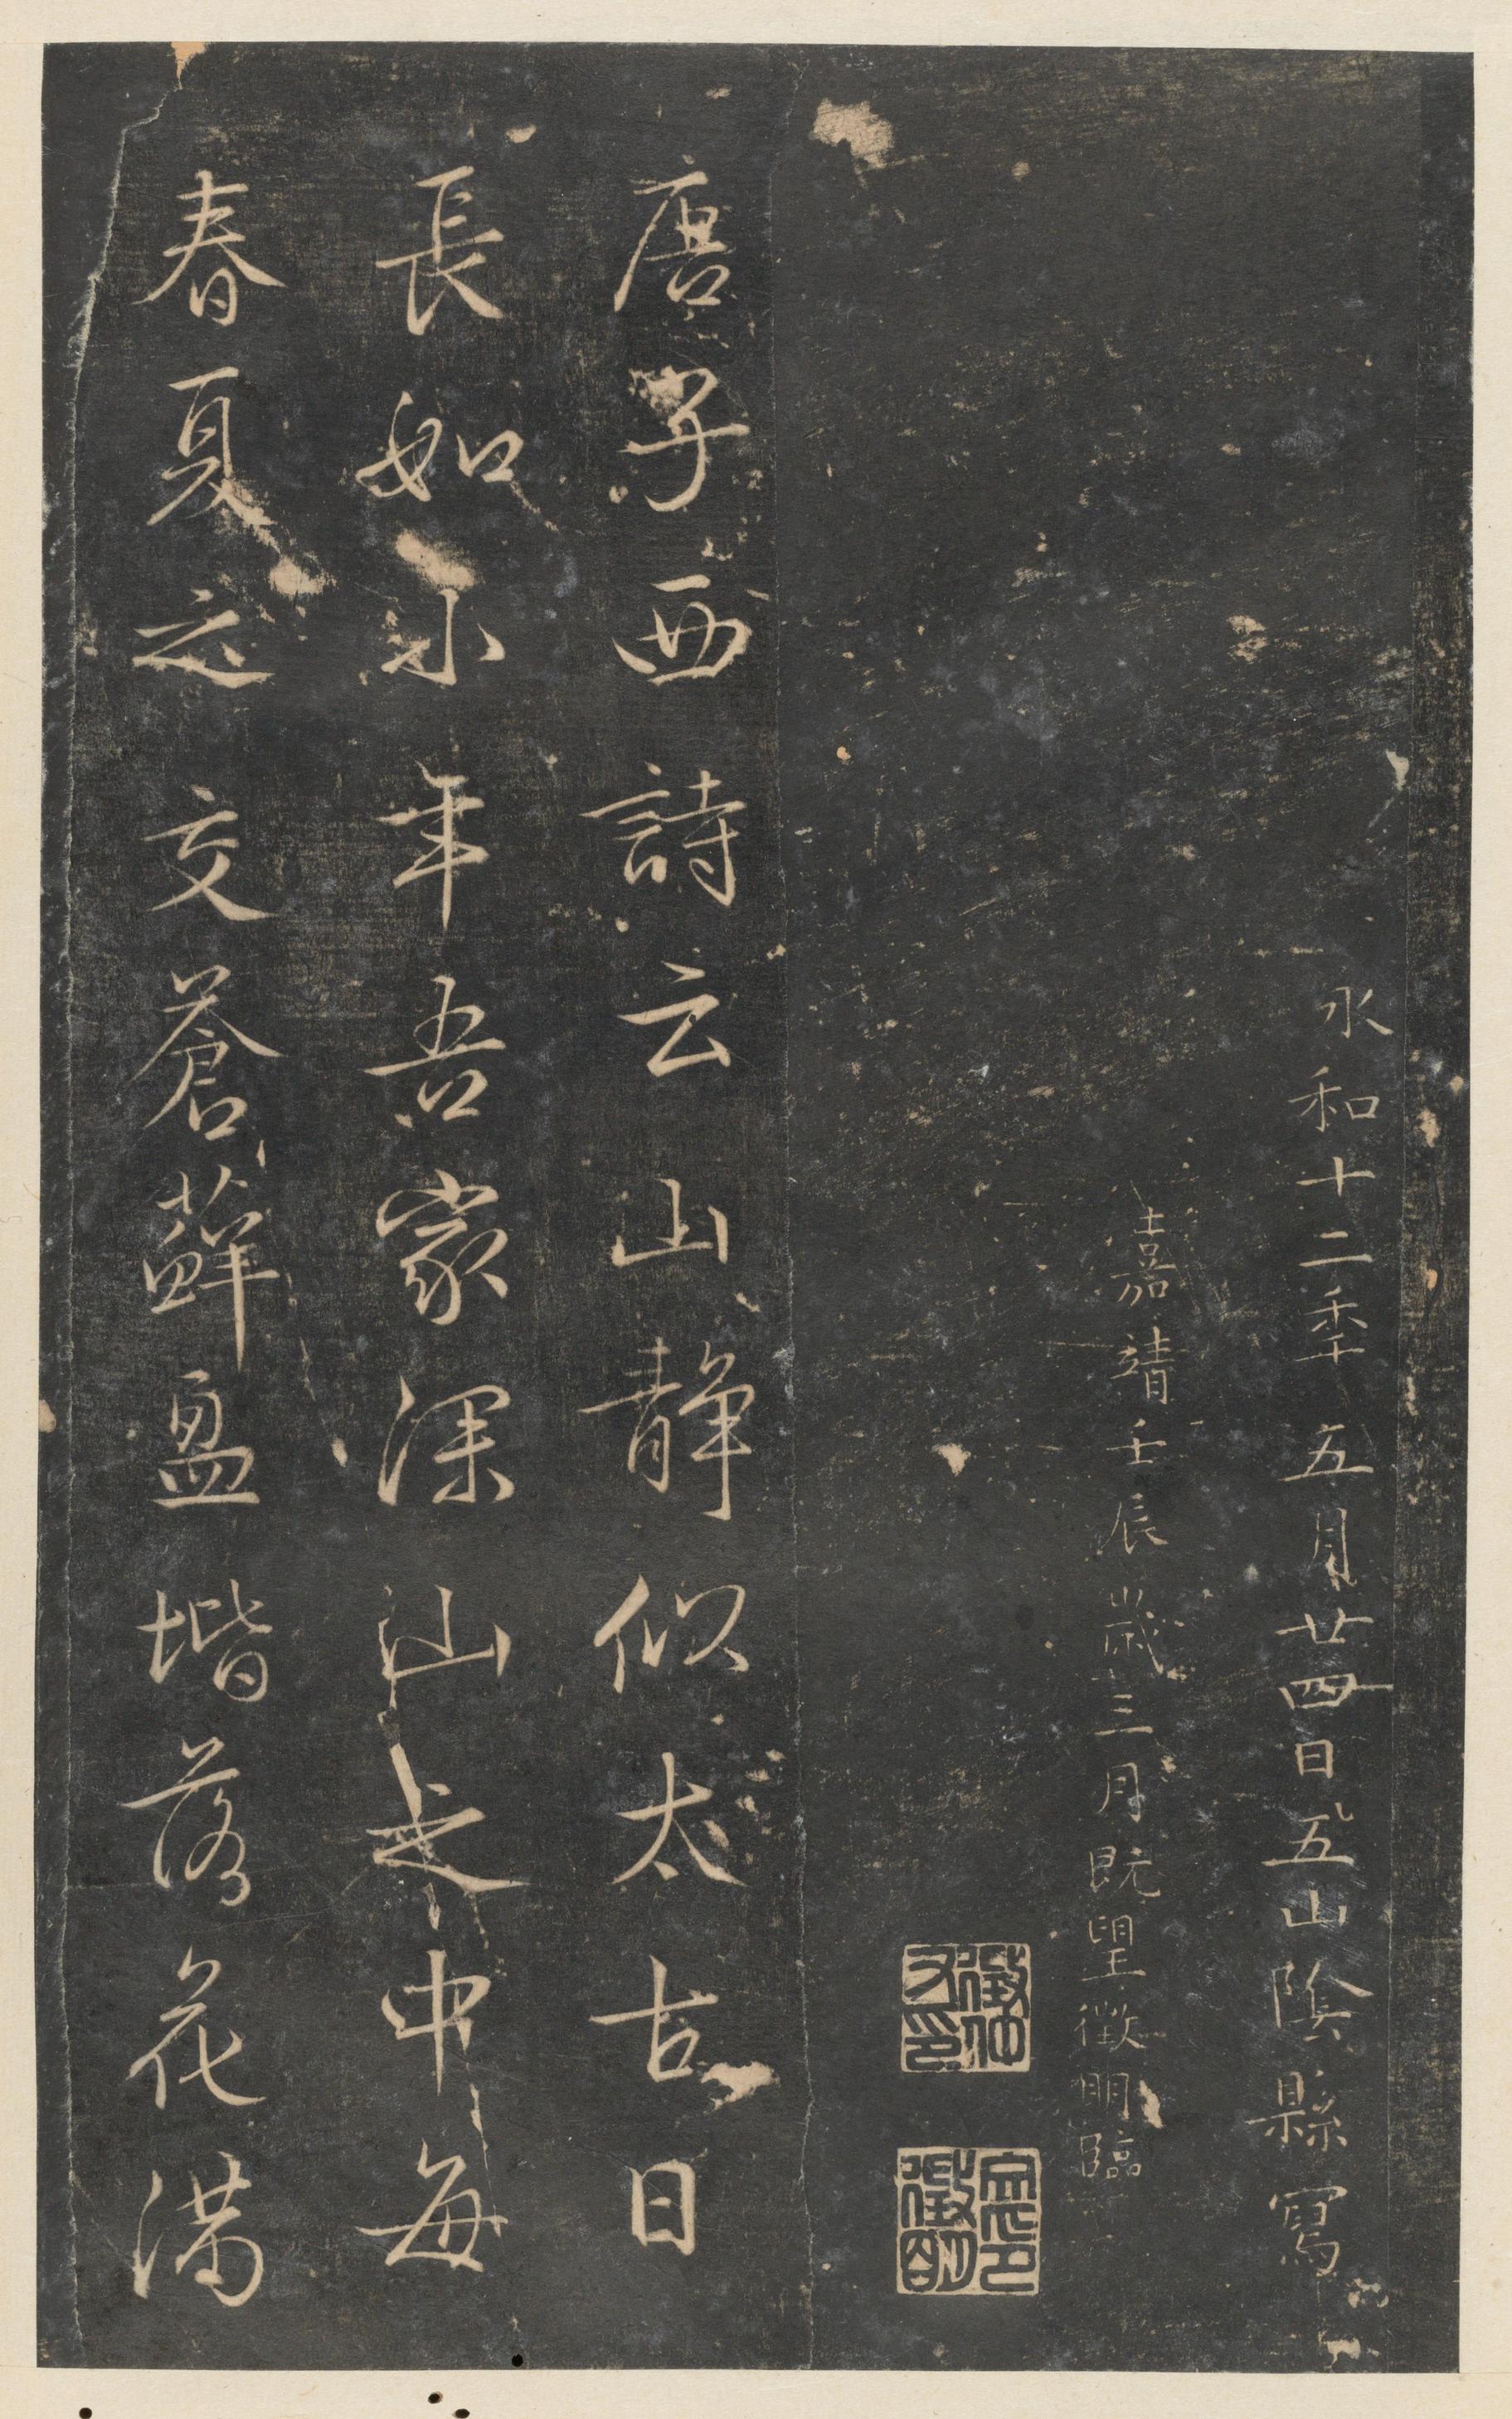 永和十二秊五月廿四日五山陰縣寫
嘉靖壬辰歲三月既朢徵明臨
徵仲父印
唐子西詩云山靜似太古日
長如小年吾家深山之中每
春夏之交蒼蘚盈堦落花滿